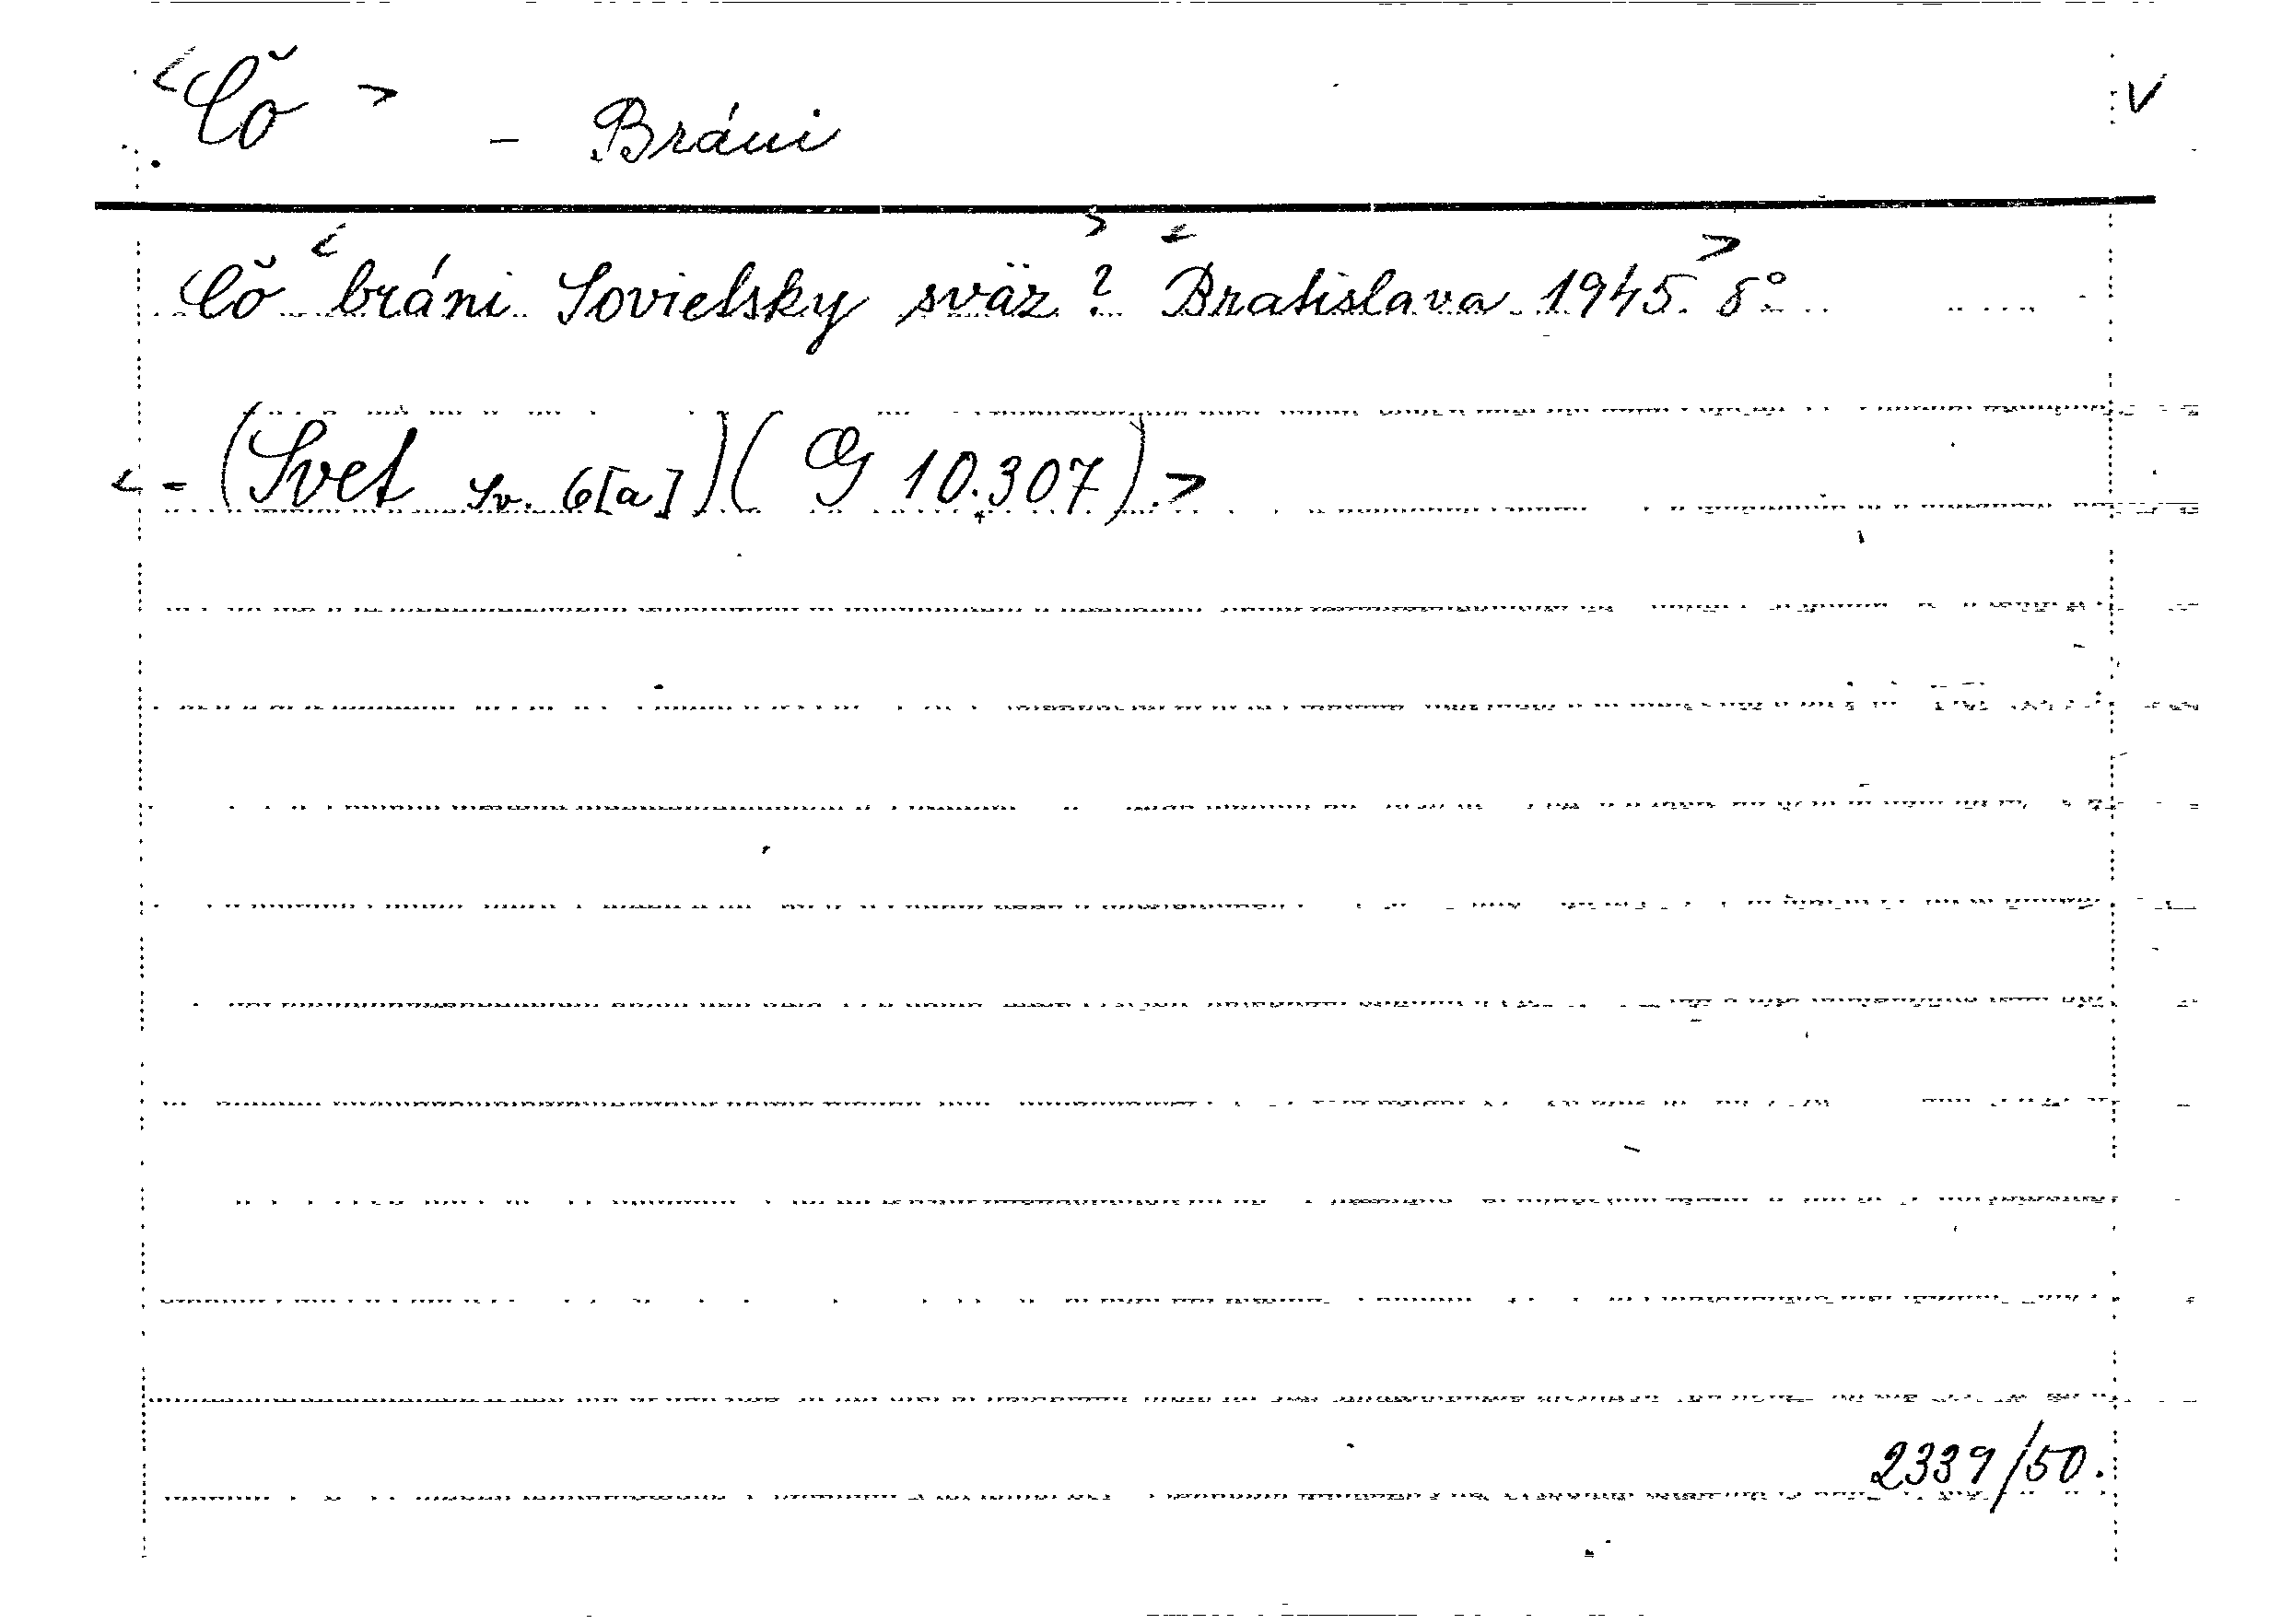 <Čo> - Bráni v
Čo <bráni Sovietsky sväz?> <Bratislava 1945.> 8°
<- (Svet sv. 6[a]) (G 10.307).>
2339/50.